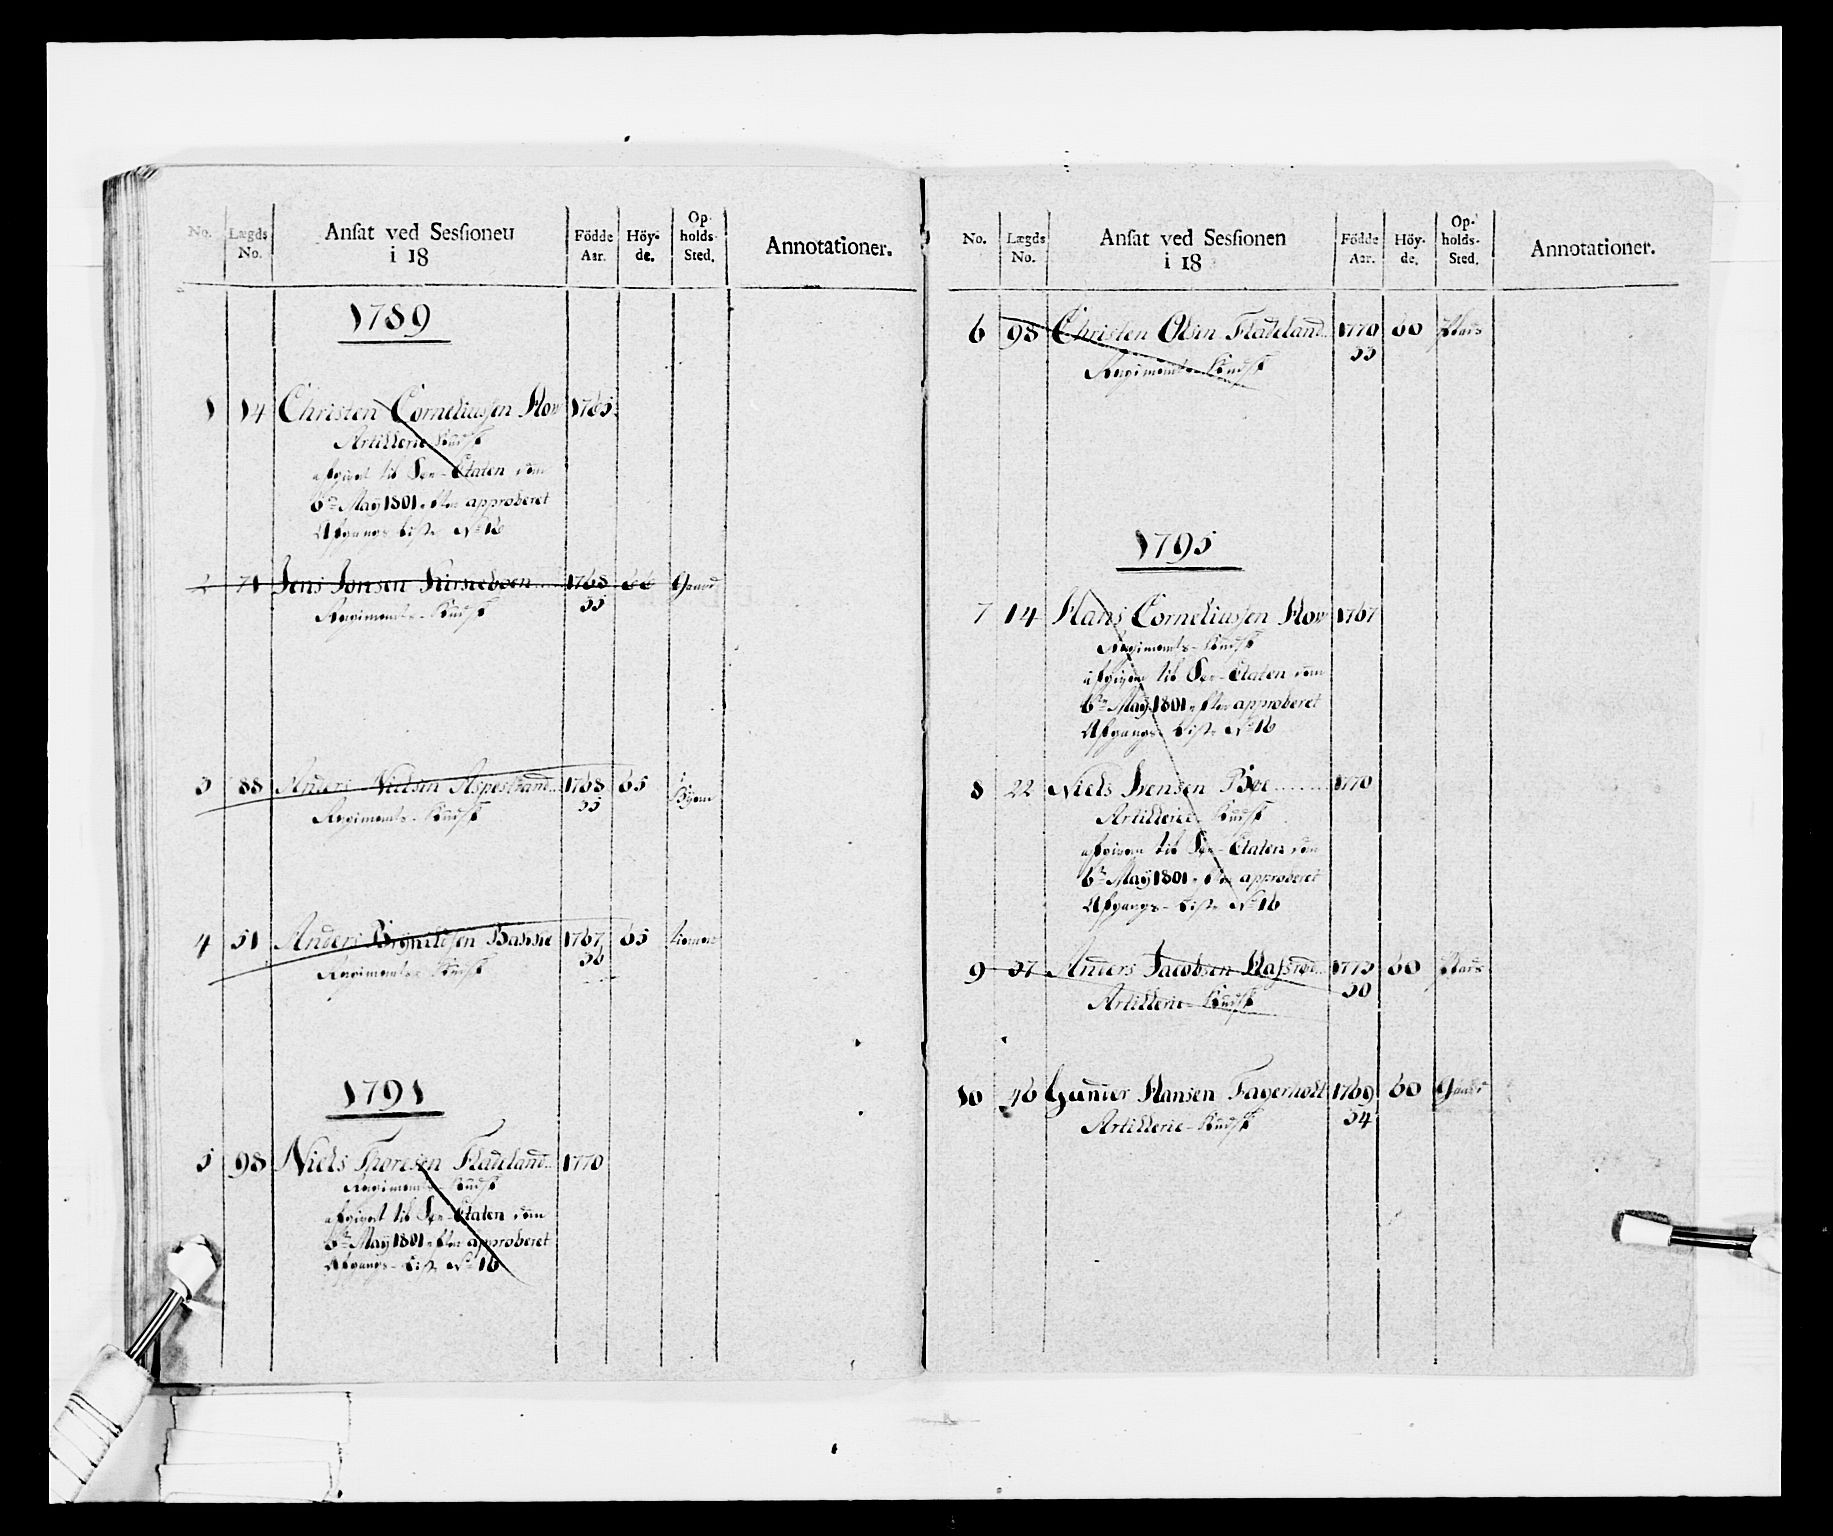 No. Lægds No. Ansat ved Sessionen i 18 Födde Aar. Höyde. Opholds-Sted. Annotationer.
1789
1 14 Christen Corneliussen Hov 1765
Artillerie-Kudsk
afgivet til Søe-Etaten som
6te May 1801 efter approberet
Afgangs Liste No 16
2 71 Jens Jonsen Kirseboen 1768 66 Gaard
35
Regiments-Kudsk
3 88 Anders Nielsen Aspestrand 1768 65
35
Regiments-Kudsk
4 51 Anders Brynildsen Bakke 1767 65
36
Regiments-Kudsk
1791
5 98 Niels Thoresen Fladeland 1770
Regiments-Kudsk
afgivet til Søe-Etaten som
6te May 1801 efter approberet
Afgangs-Liste No 16
No. Lægds No. Ansat ved Sessionen i 18 Födde Aar. Höyde. Opholds-Sted. Annotationer.
6 98 Christen Olsen Fladeland 1770 60
33
Regiments-Kudsk
1795
7 14 Hans Corneliussen Hov 1767
Regiments-Kudsk
afgiven til Søe-Etaten som
6te May 1801 efter approberet
Afgangs-Liste No 16
8 22 Niels Svensen Bøe 1770
Artillerie-Kudsk
afgiven til Søe-Etaten som
6te May 1801 efter approberet
Afgangs-Liste No 16
9 37 Anders Jacobsen 1773 60
30
Artillerie-Kudsk
10 46 Gunder Hansen Fagerholt 1769 60 Gaard
34
Artillerie-Kudsk